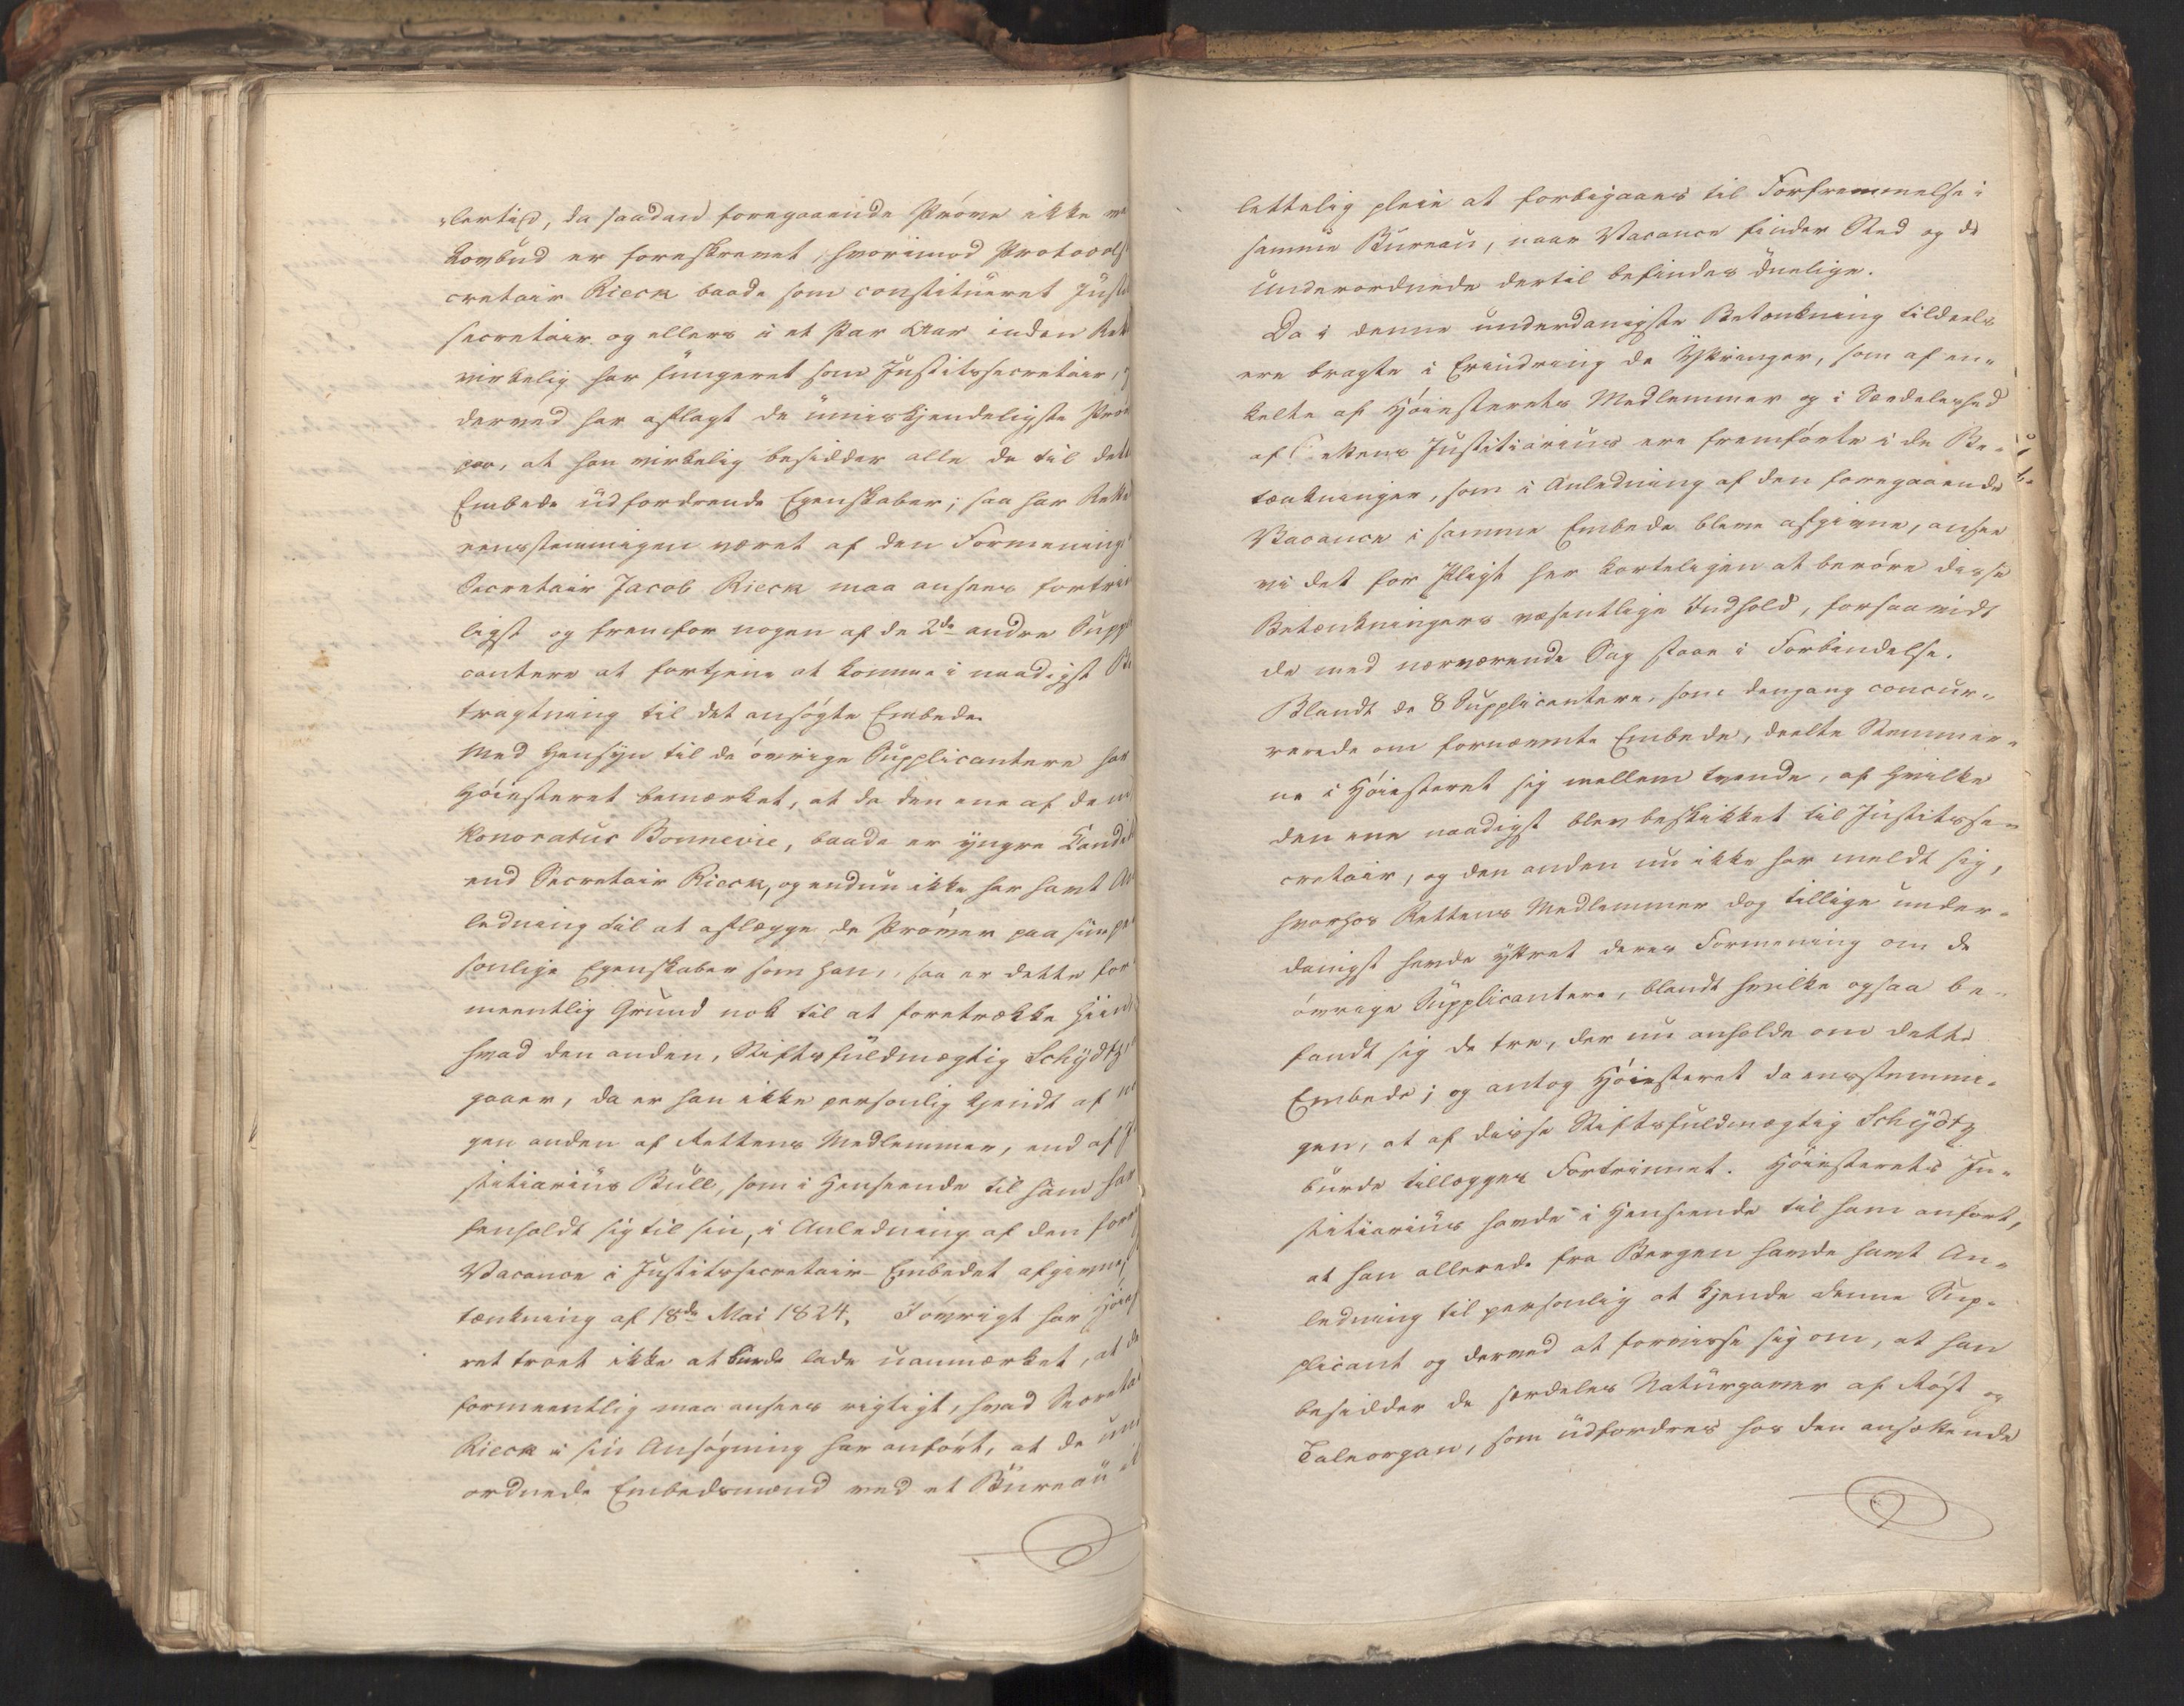 lertid, da saadan foregaaende Prøve ikke ve
Lovbud er foreskrevet, hvorimod Protocols
cretair Rieck baade som constitueret Justi
secretair og ellers i et Par Aar inden Ret
virkelig har fungeret som Justitssecretair,
derved har aflagt de umiskjendeligste Prøv
paa, at han virkelig besidder alle de til dett
Embede udfordrende Egenskaber; saa har Rette
eensstemmigen været af den Formening
Secretair Jacob Rieck maa ansees fortrin
ligst og fremfor nogen af de 2de andre Suppl
cantere at fortjene at komme i naadigst Be
tragtning til det ansøgte Embede.
Med Hensyn til de øvrige Supplicantere har
Høiesteret bemærket, at da den ene af dem
Honoratus Bonnevie, baade er yngre Candid
end Secretair Rieck, og endnu ikke har havt An
ledning til at aflægge de Prøver paa sine per
sonlige Egenskaber som han, saa er dette for
meentlig Grund nok til at foretrække Hiin
hvad den anden, Stiftsfuldmægtig Schydtz,
gaaer, da er han ikke personlig kjendt af no
gen anden af Rettens Medlemmer, end af Ju
stitiarius Bull, som i Henseende til ham har
henholdt sig til sin, i Anledning af den forri
Vacance i Justitssecretair-Embedet afgivne
tænkning af 18de Mai 1824. Iøvrigt har Høies
ret troet ikke at burde lade uanmærket, at de
formeentlig maa ansees rigtigt, hvad Secretai
Rieck i sin Ansøgning har anført, at de un
ordnede Embedsmænd ved et Bureau
lettelig pleie at forbigaaes til Forfremmelse i
samme Bureau, naar Vacance finder Sted og de
Underordnede dertil befindes duelige.
Da i denne underdanigste Betænkning tildeels
ere bragte i Erindring de Yttringer, som af en-
kelte af Høiesterets Medlemmer og i Særdeleshed
af Rettens Justitiarius ere fremførte i de Be-
tænkninger, som i Anledning af den foregaaende
Vacance i samme Embede bleve afgivne, ansee
vi det for Pligt her korteligen at berøre disse
Betænkningers væsentlige Indhold, forsaavidt
de med nærværende Sag staae i Forbindelse.
Blandt de 8 Supplicantere, som dengang concur-
rerede om fornævnte Embede, deelte Stemmer-
ne i Høiesteret sig mellem tvende, af Hvilke
den ene naadigst blev beskikket til Justitsse-
cretair, og den anden nu ikke har meldt sig,
hvorhos Rettens Medlemmer dog tillige under-
danigst havde yttret deres Formening om de
øvrige Supplicantere, blandt hvilke ogsaa be-
fandt sig de tre, der nu anholde om dette
Embede; og antog Høiesteret da eensstemmi-
gen, at af disse Stiftsfuldmægtig Schydtz
burde tillægges Fortrinnet. Høiesterets Ju-
stitiarius havde i Henseende til ham anført,
at han allerede fra Bergen havde havt An-
ledning til personlig at kjende denne Sup-
plicant og derved at forvisse sig om, at han
besidder de særdeles Naturgaver af Røst og
Taleorgan, som udfordres hos den ansættende